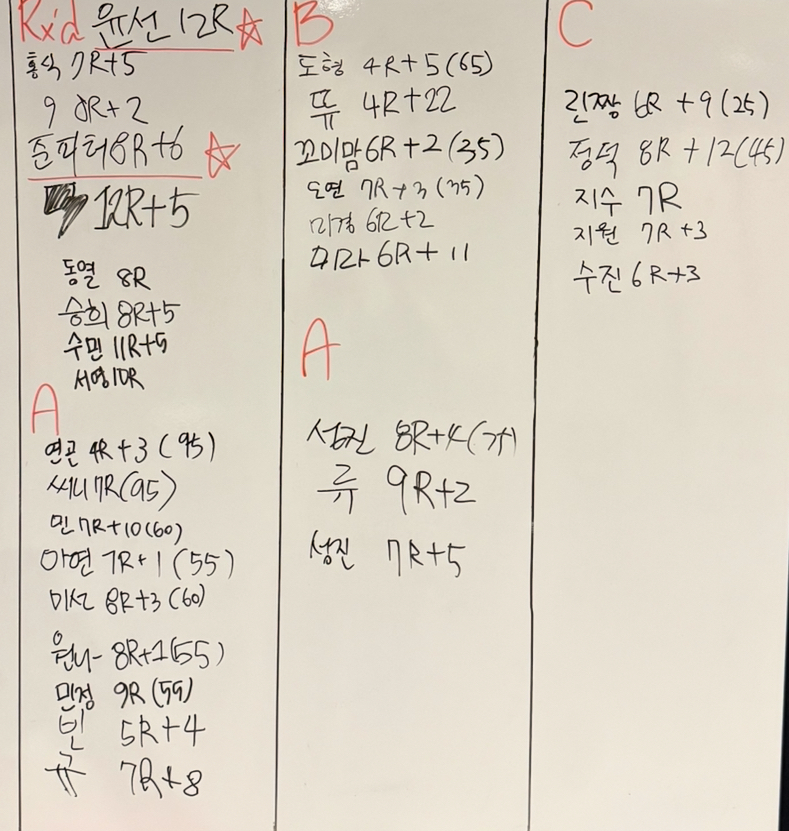 Rx'd 윤선 12R
홍식 7R+5
9 8R+2
준피터 8R+6
12R+5
동열 8R
승희 8R+5
수민 11R+5
서영 10R
A
연곤 4R+3 (95)
써니 7R(95)
민 7R+10(60)
아연 7R+1 (55)
미선 8R+3(60)
원나 8R+1(55)
민정 9R(55)
빈 5R+4
규 7R+8
B
도형 4R+5(65)
뜌 4R+22
꼬미맘 6R+2(35)
도연 7R+3 (35)
미경 6R+2
6R+11
A
8R+4
류 9R+2
성진 7R+5
C
린짱 6R+9(25)
정덕 8R+12(45)
지수 7R
지원 7R+3
수진 6R+3